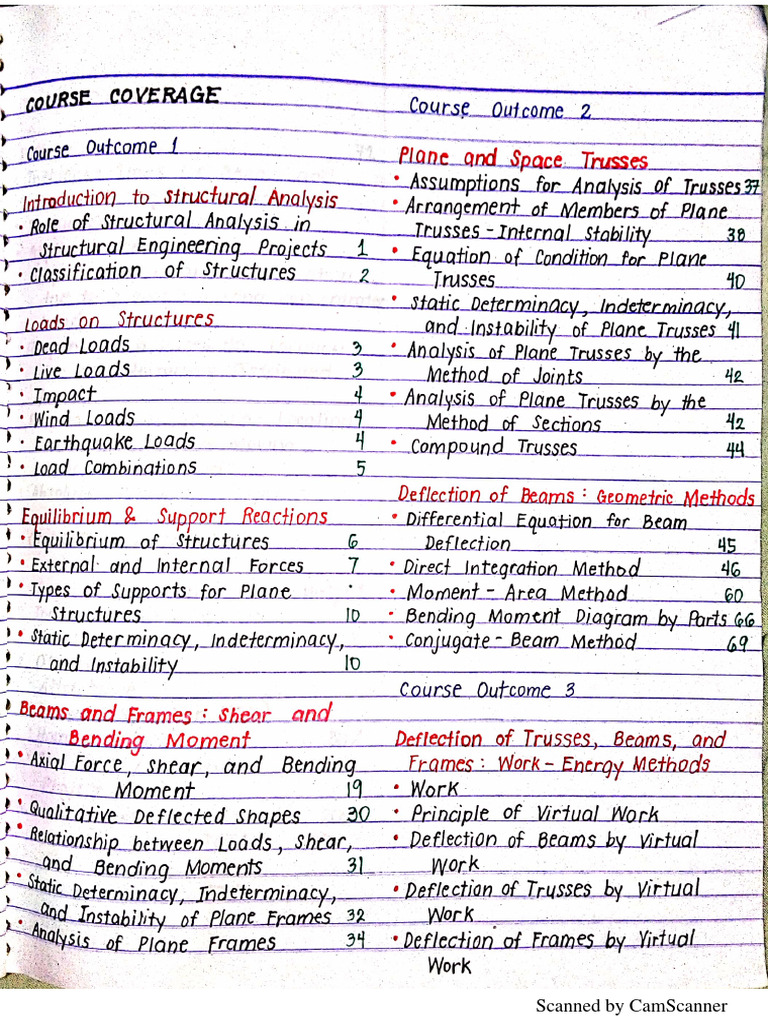 COURSE COVERAGE
Course Outcome 1
Introduction to Structural Analysis
• Role of Structural Analysis in
Structural Engineering Projects 1
• Classification of Structures 2
Loads on Structures
• Dead Loads 3
• Live Loads 3
• Impact 4
• Wind Loads 4
• Earthquake Loads 4
• Load Combinations 5
Equilibrium & Support Reactions
• Equilibrium of Structures 6
• External and Internal Forces 7
• Types of Supports for Plane
Structures 10
• Static Determinacy, Indeterminacy,
and Instability 10
Beams and Frames: Shear and
Bending Moment
• Axial Force, Shear, and Bending
Moment 19
• Qualitative Deflected Shapes 30
• Relationship between Loads, Shear,
and Bending Moments 31
• Static Determinacy, Indeterminacy,
and Instability of Plane Frames 32
• Analysis of Plane Frames 34
Course Outcome 2
Plane and Space Trusses
• Assumptions for Analysis of Trusses 37
• Arrangement of Members of Plane
Trusses - Internal Stability 38
• Equation of Condition for Plane
Trusses 40
• Static Determinacy, Indeterminacy,
and Instability of Plane Trusses 41
• Analysis of Plane Trusses by the
Method of Joints 42
• Analysis of Plane Trusses by the
Method of Sections 42
• Compound Trusses 44
Deflection of Beams: Geometric Methods
• Differential Equation for Beam
Deflection 45
• Direct Integration Method 46
• Moment - Area Method 60
• Bending Moment Diagram by Parts 66
• Conjugate - Beam Method 69
Course Outcome 3
Deflection of Trusses, Beams, and
Frames: Work - Energy Methods
• Work
• Principle of Virtual Work
• Deflection of Beams by Virtual
Work
• Deflection of Trusses by Virtual
Work
• Deflection of Frames by Virtual
Work
Scanned by CamScanner